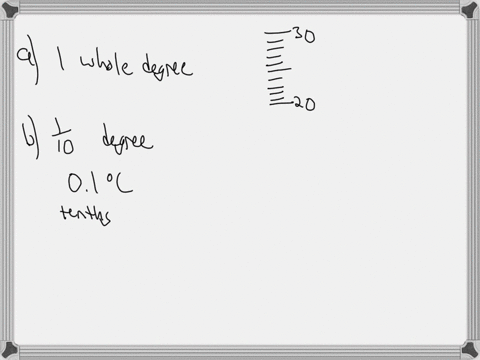 a) 1 whole degree
30
20
b) 1/10 degree
0.1°C
tenths